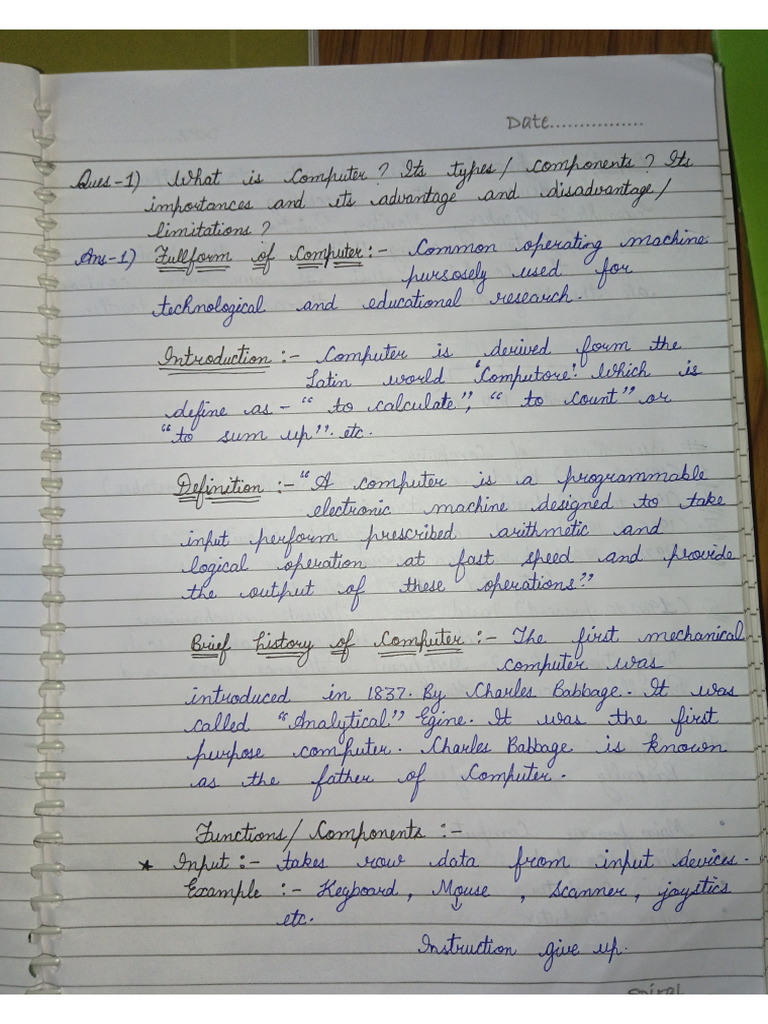 Date................
Ques-1) What is Computer? Its types/ components? Its
importances and its advantage and disadvantage/
limitations?
Ans-1) Fullform of Computer:- Common operating machine
pursosely used for
technological and educational research.
Introduction:- Computer is derived form the
Latin world 'Computore'. Which is
define as - "to calculate", "to count" or
"to sum up". etc.
Definition:- "A computer is a programmable
electronic machine designed to take
input perform prescribed arithmetic and
logical operation at fast speed and provide
the output of these operations"
Brief history of Computer:- The first mechanical
computer was
introduced in 1837. By Charles Babbage. It was
called "Analytical" Egine. It was the first
purpose computer. Charles Babbage is known
as the father of Computer.
Functions/Components:-
* Input:- takes row data from input devices.
Example:- Keyboard, Mouse, Scanner, joystics
etc.
Instruction give up.
spiral